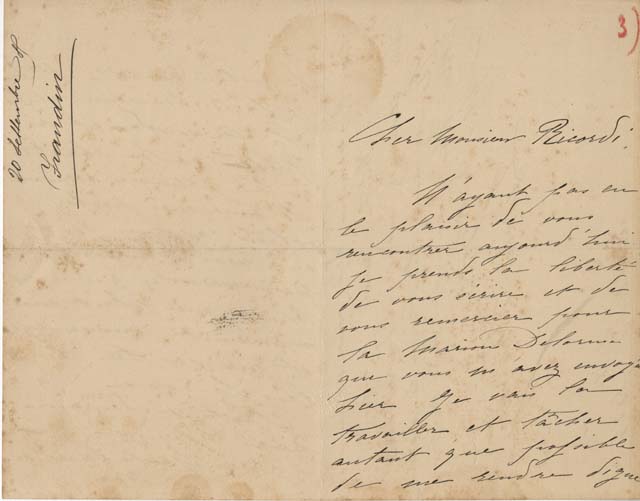 3)
20 Settembre
Frandin
Cher Monsieur Ricordi.
N'ayant pas eu
le plaisir de vous
rencontrer aujourd'hui
je prends la liberté
de vous écrire et de
vous remercier pour
la Marion Delorme
que vous m'avez envoyé
hier Je vais la
travailler et tâcher
autant que possible
de me rendre digne